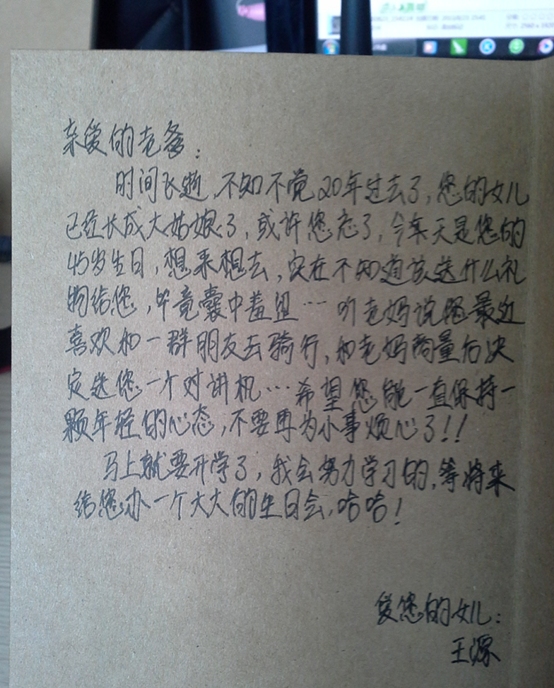 亲爱的老爸：
时间飞逝，不知不觉20年过去了，您的女儿
已经长成大姑娘了，或许您忘了，今年天是您的
45岁生日，想来想去，实在不知道该送什么礼
物给您，毕竟囊中羞涩…听老妈说您最近
喜欢和一群朋友去骑行，和老妈商量后决
定送您一个对讲机…希望您能一直保持一
颗年轻的心态，不要再为小事烦心了!!
马上就要开学了，我会努力学习的，等将来
给您办一个大大的生日会，哈哈！
爱您的女儿：
王源